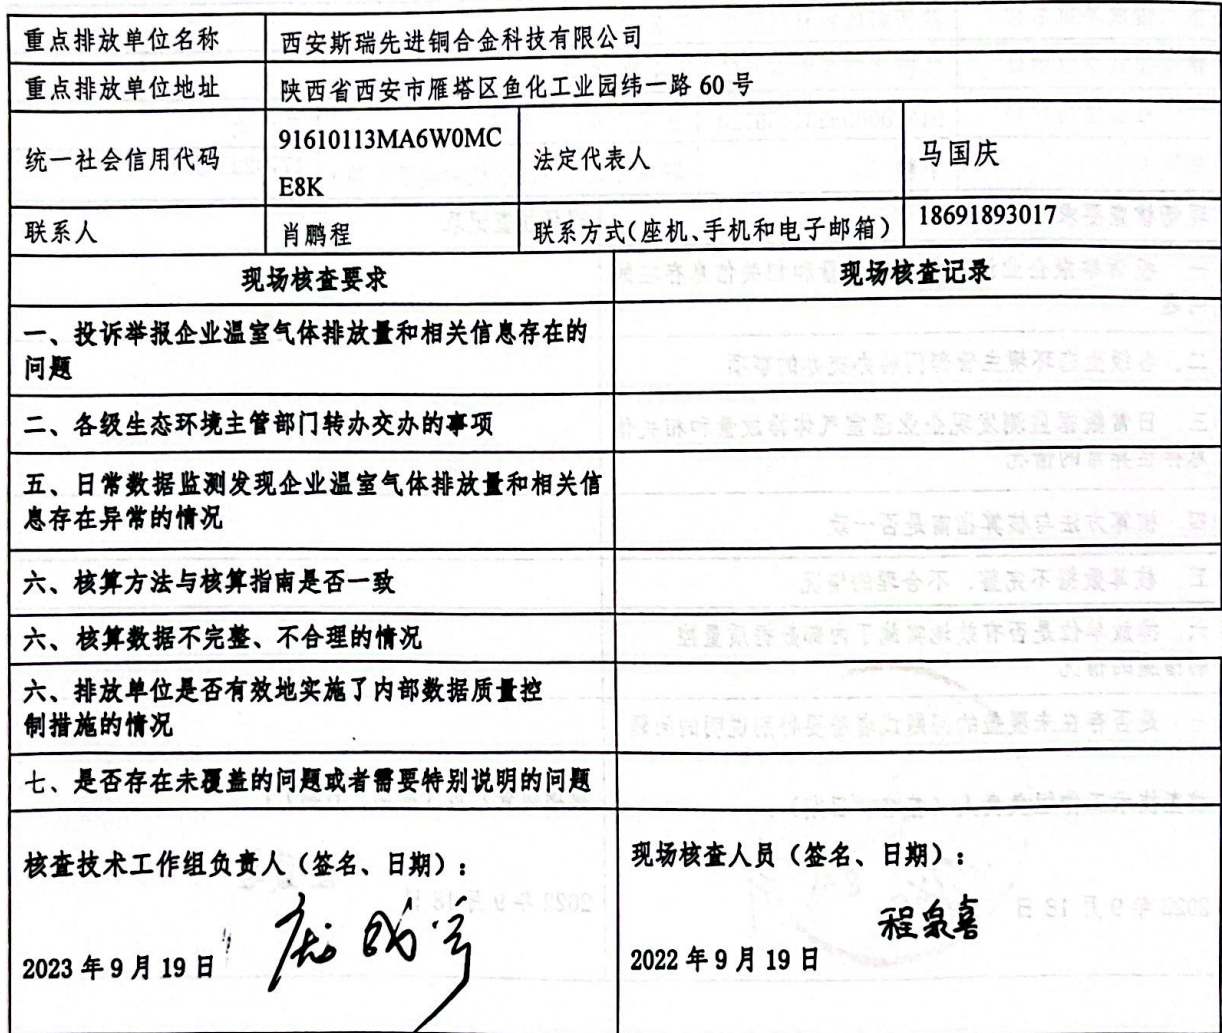 重点排放单位名称 西安斯瑞先进铜合金科技有限公司
重点排放单位地址 陕西省西安市雁塔区鱼化工业园纬一路 60 号
统一社会信用代码 91610113MA6W0MC
E8K 法定代表人 马国庆
联系人 肖鹏程 联系方式（座机、手机和电子邮箱） 18691893017
现场核查要求 现场核查记录
一、投诉举报企业温室气体排放量和相关信息存在的
问题
二、各级生态环境主管部门转办交办的事项
五、日常数据监测发现企业温室气体排放量和相关信
息存在异常的情况
六、核算方法与核算指南是否一致
六、核算数据不完整、不合理的情况
六、排放单位是否有效地实施了内部数据质量控
制措施的情况
七、是否存在未覆盖的问题或者需要特别说明的问题
核查技术工作组负责人（签名、日期）：
2023 年 9 月 19 日
现场核查人员（签名、日期）：
程泉喜
2022 年 9 月 19 日